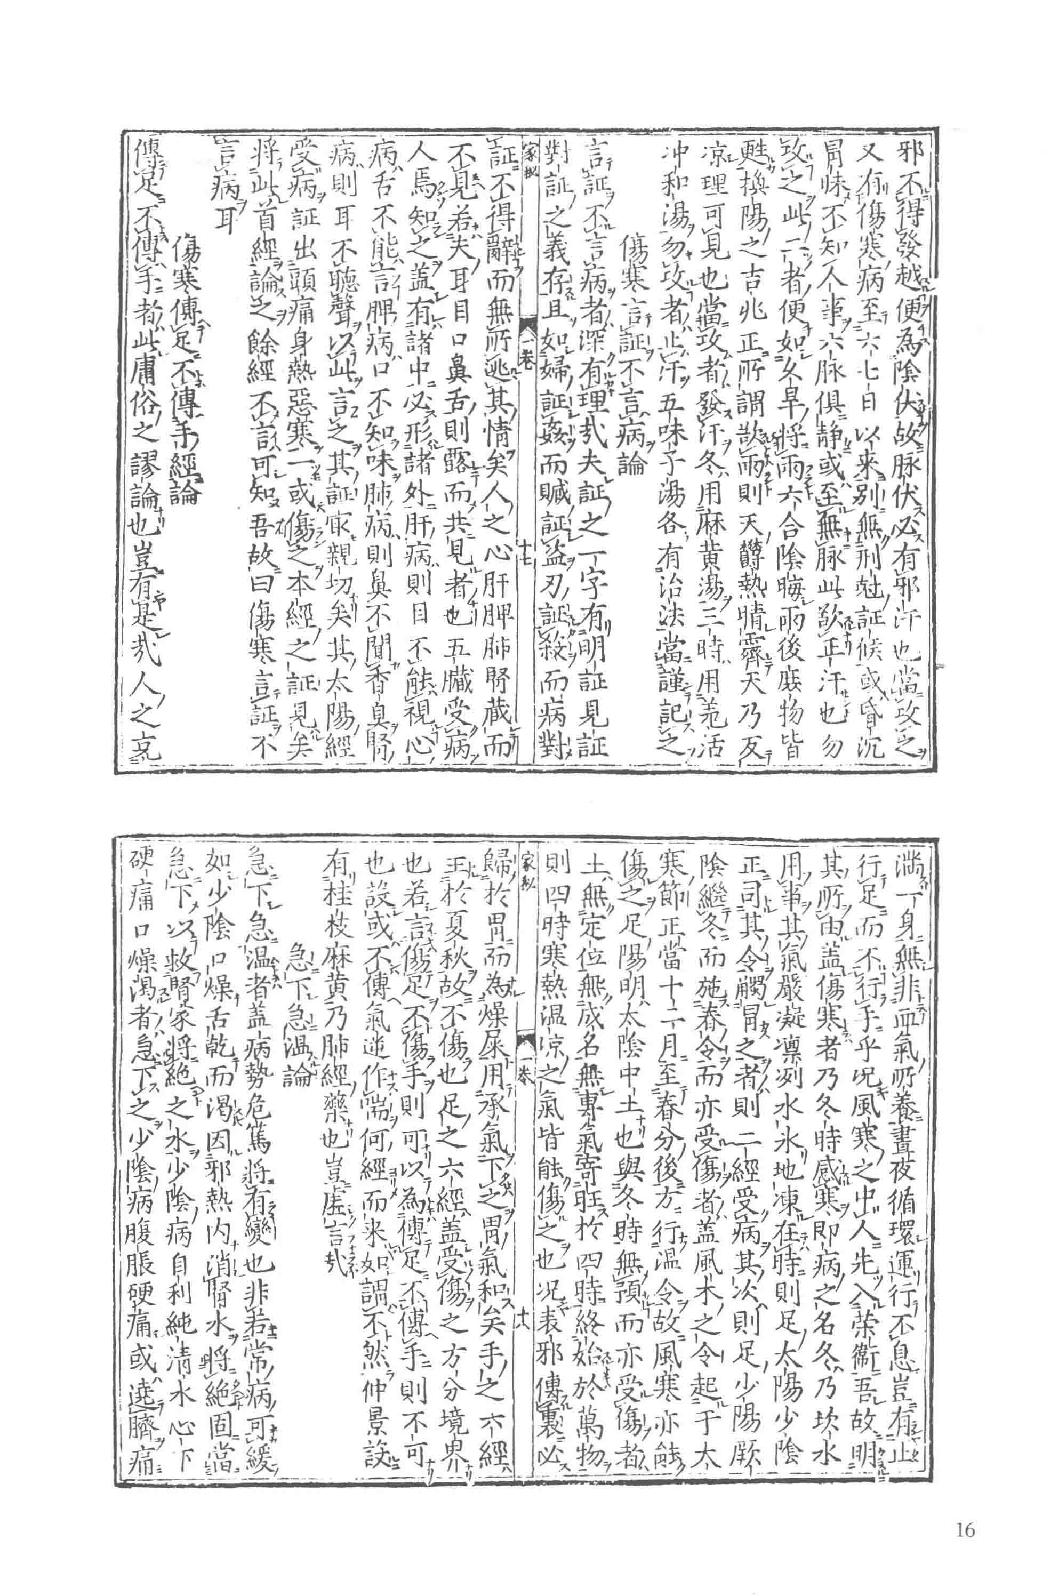 邪不得發越便為陰伏故脉伏必有邪汗也當攻之
又有傷寒病至六七日以来別無刑尅証候或昏沉
冐昧不知人事六脉俱静或至無脉此欲正汗也勿
攻之此二者便如久旱將雨六合陰晦雨後庶物皆
甦換陽之吉兆正所謂欲雨則天欝熱晴霽天乃反
凉理可見也當攻者發汗冬用麻黄湯三時用羗活
冲和湯勿攻者止汗五味子湯各有治法當謹記之
傷寒言証不言病論
言証不言病者深有理㢤夫証之一字有明証見証
對証之義存且如婦証姦而贓証盗刃証殺而病對
家秘 一卷 十七
証不得辭而無所逃其情矣人之心肝脾肺腎蔵而
不見若夫耳目口鼻舌則露而共見者也五臓受病
人焉知之蓋有諸中必形諸外肝病則目不能視心
病舌不能言脾病口不知味肺病則鼻不聞香臭腎
病則耳不聽聲以此言之其証㝡親切矣其太陽經
受病証出頭痛身熱惡寒一或傷之本經之証見矣
將此首經論之餘經不言可知吾故曰傷寒言証不
言病耳
傷寒傳足不傳手經論
傳足不傳手者此庸俗之謬論也豈有是㢤人之充
満一身無非血氣所養晝夜循環運行不息豈有止
行足而不行手乎况風寒之出人先入榮衞吾故明
其所由蓋傷寒者乃冬時感寒即病之名冬乃坎水
用事其氣嚴凝凛冽水氷地凍在時則足太陽少陰
正司其令觸冐之者則二經受病其次則足少陽厥
陰繼冬而施春令而亦受傷者蓋風木之令起于大
寒節正當十二月至春分後方行温令故風寒亦能
傷之足陽明太陰中土也與冬時無預而亦受傷者
土無定位無成名無專氣寄旺於四時終始於萬物
則四時寒熱温凉之氣皆能傷之也况表邪傳裏必
家秘 一卷 十八
歸於胃而為燥屎用承氣下之胃氣和矣手之六經
王於夏秋故不傷也足之六經蓋受傷之方分境界
也若言傷足不傷手則可以為傳足不傳手則不可
也設或不傳氣逆作喘何經而来如謂不然仲景設
有桂枝麻黄乃肺經藥也豈虚言㢤
急下急温論
急下急温者蓋病勢危篤將有變也非若常病可緩
如少陰口燥舌乾而渇因邪熱内消腎水將絶固當
急下以救腎家將絶之水少陰病自利純清水心下
硬痛口燥渇者急下之少陰病腹脹硬痛或遶臍痛
16